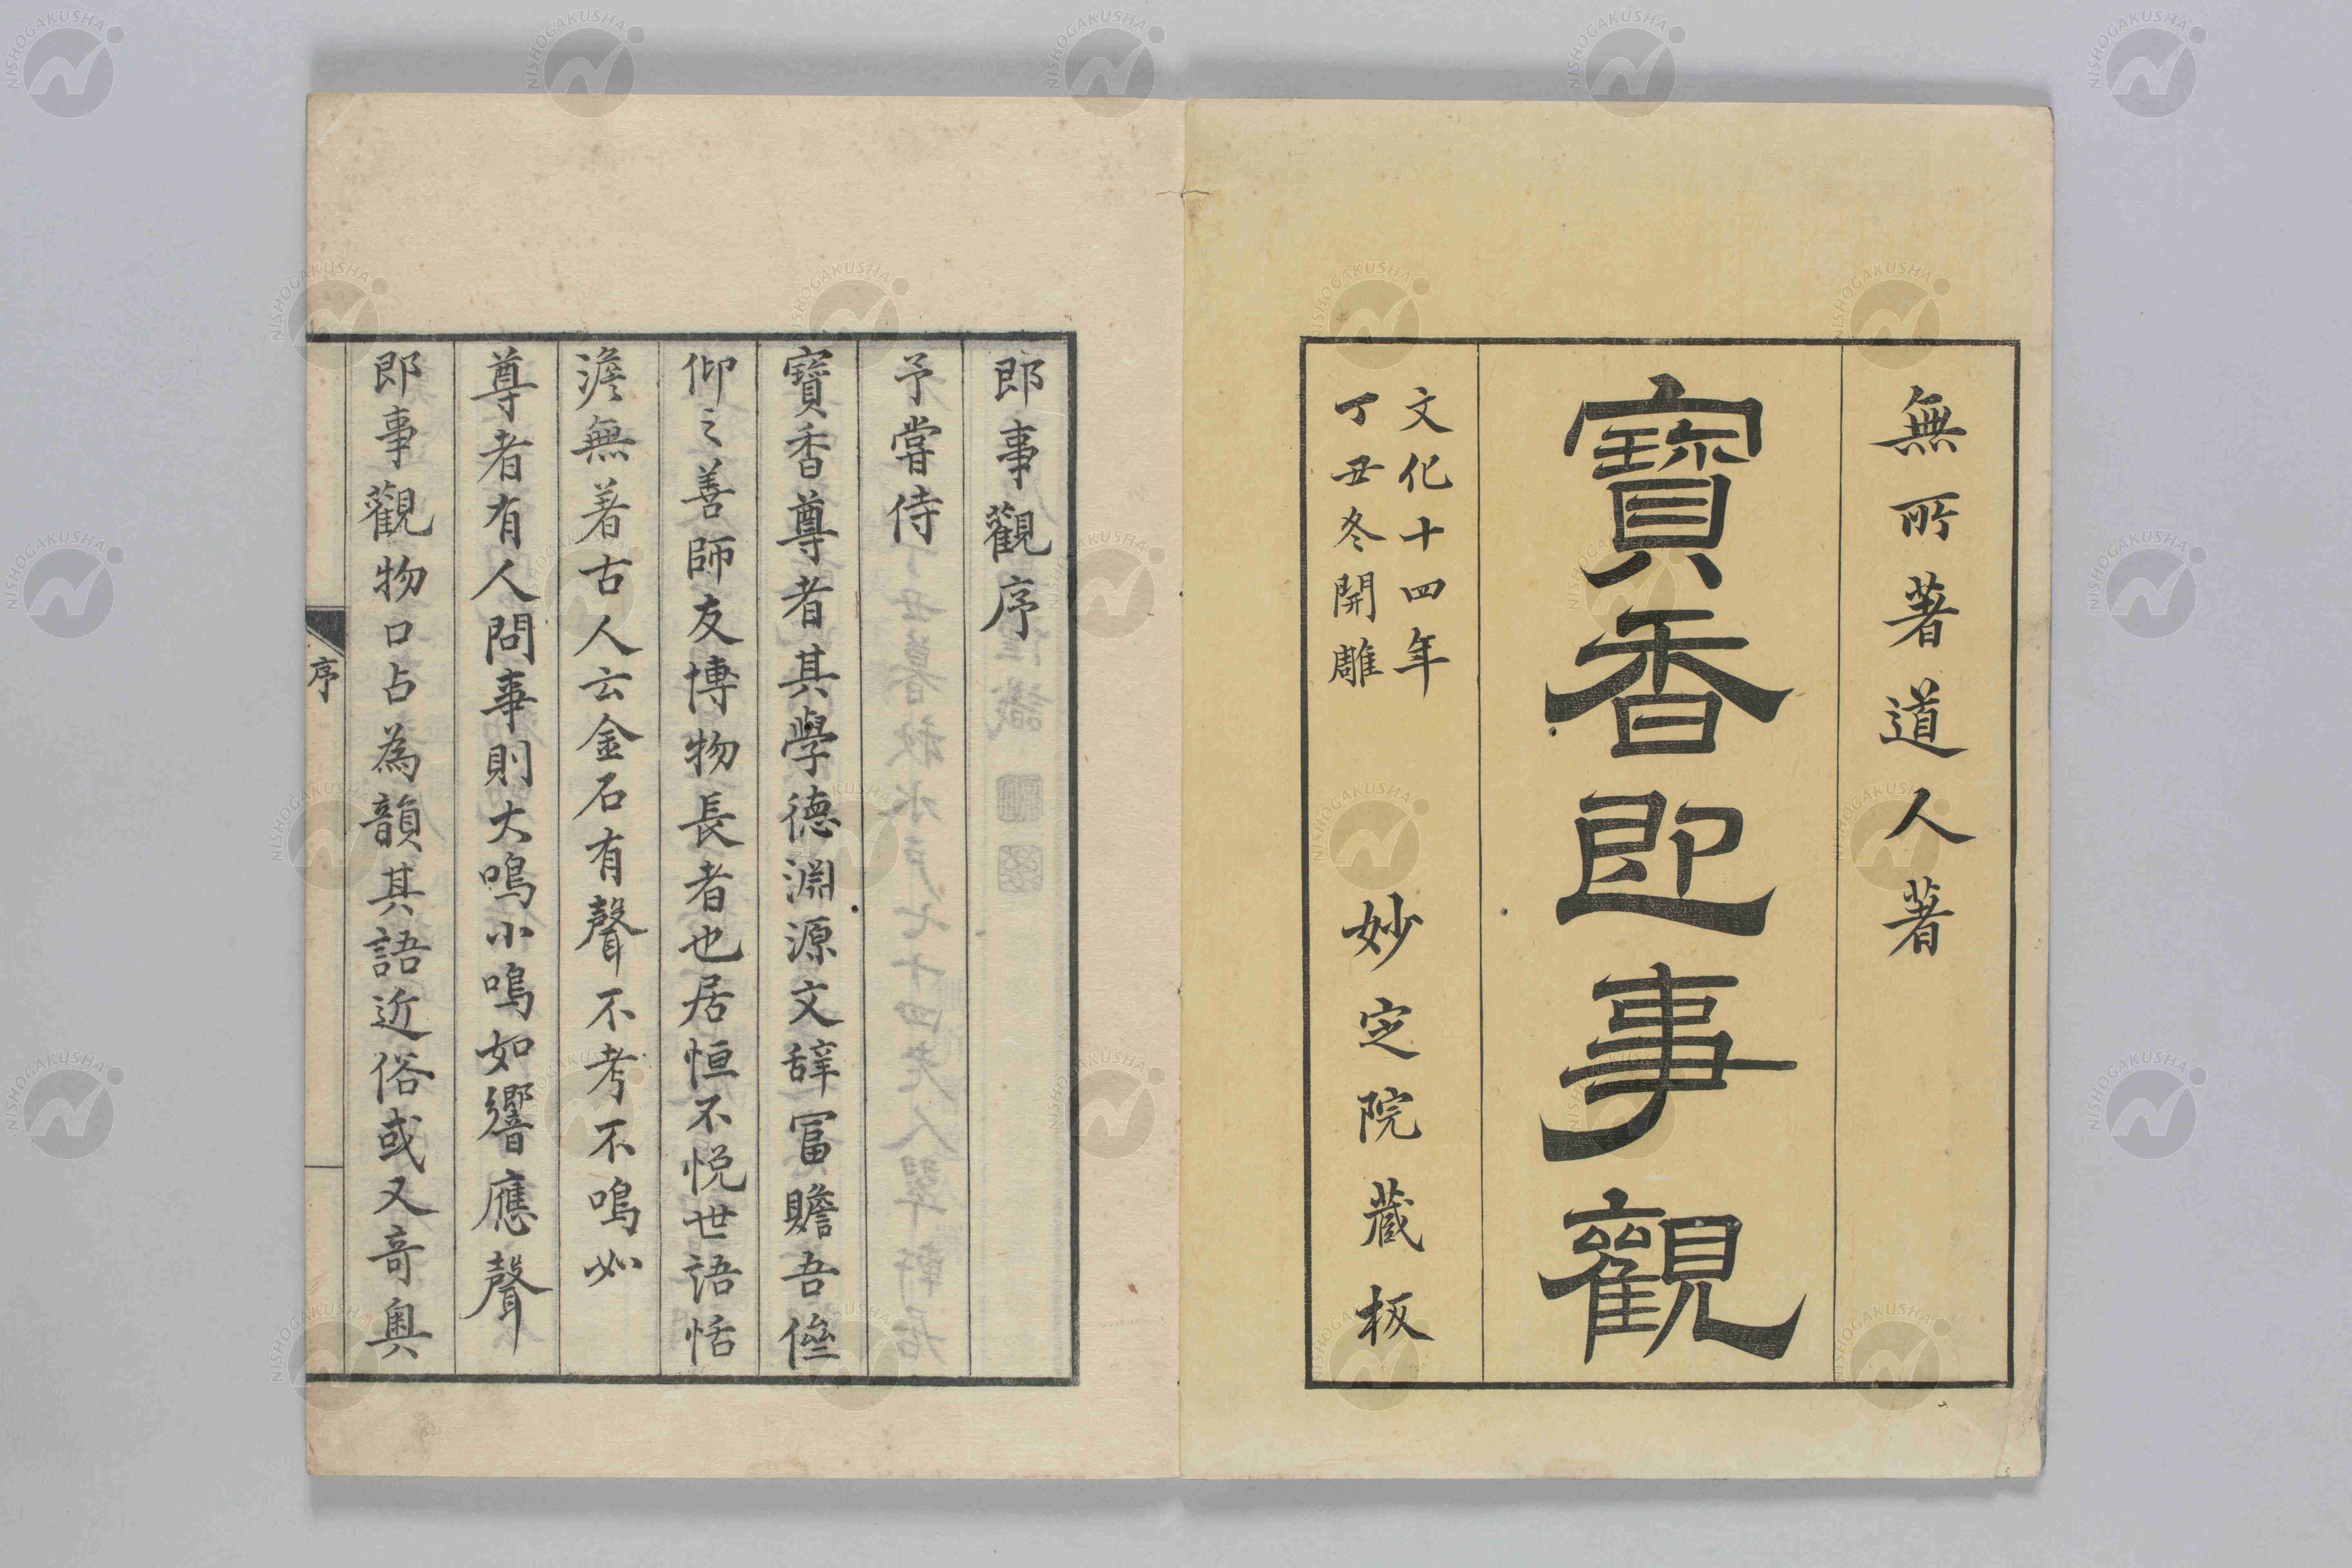 無所著道人著
寶香即事觀
文化十四年
丁丑冬開雕
妙定院藏板
即事觀序
予嘗侍
寶香尊者其學德淵源文辭冨贍吾儕
仰之善師友博物長者也居恒不悦世語恬
澹無著古人云金石有聲不考不鳴如
尊者有人問事則大鳴小鳴如響應聲
即事觀物口占為韻其語近俗或又奇奥
序
NISHOGAKUSHA